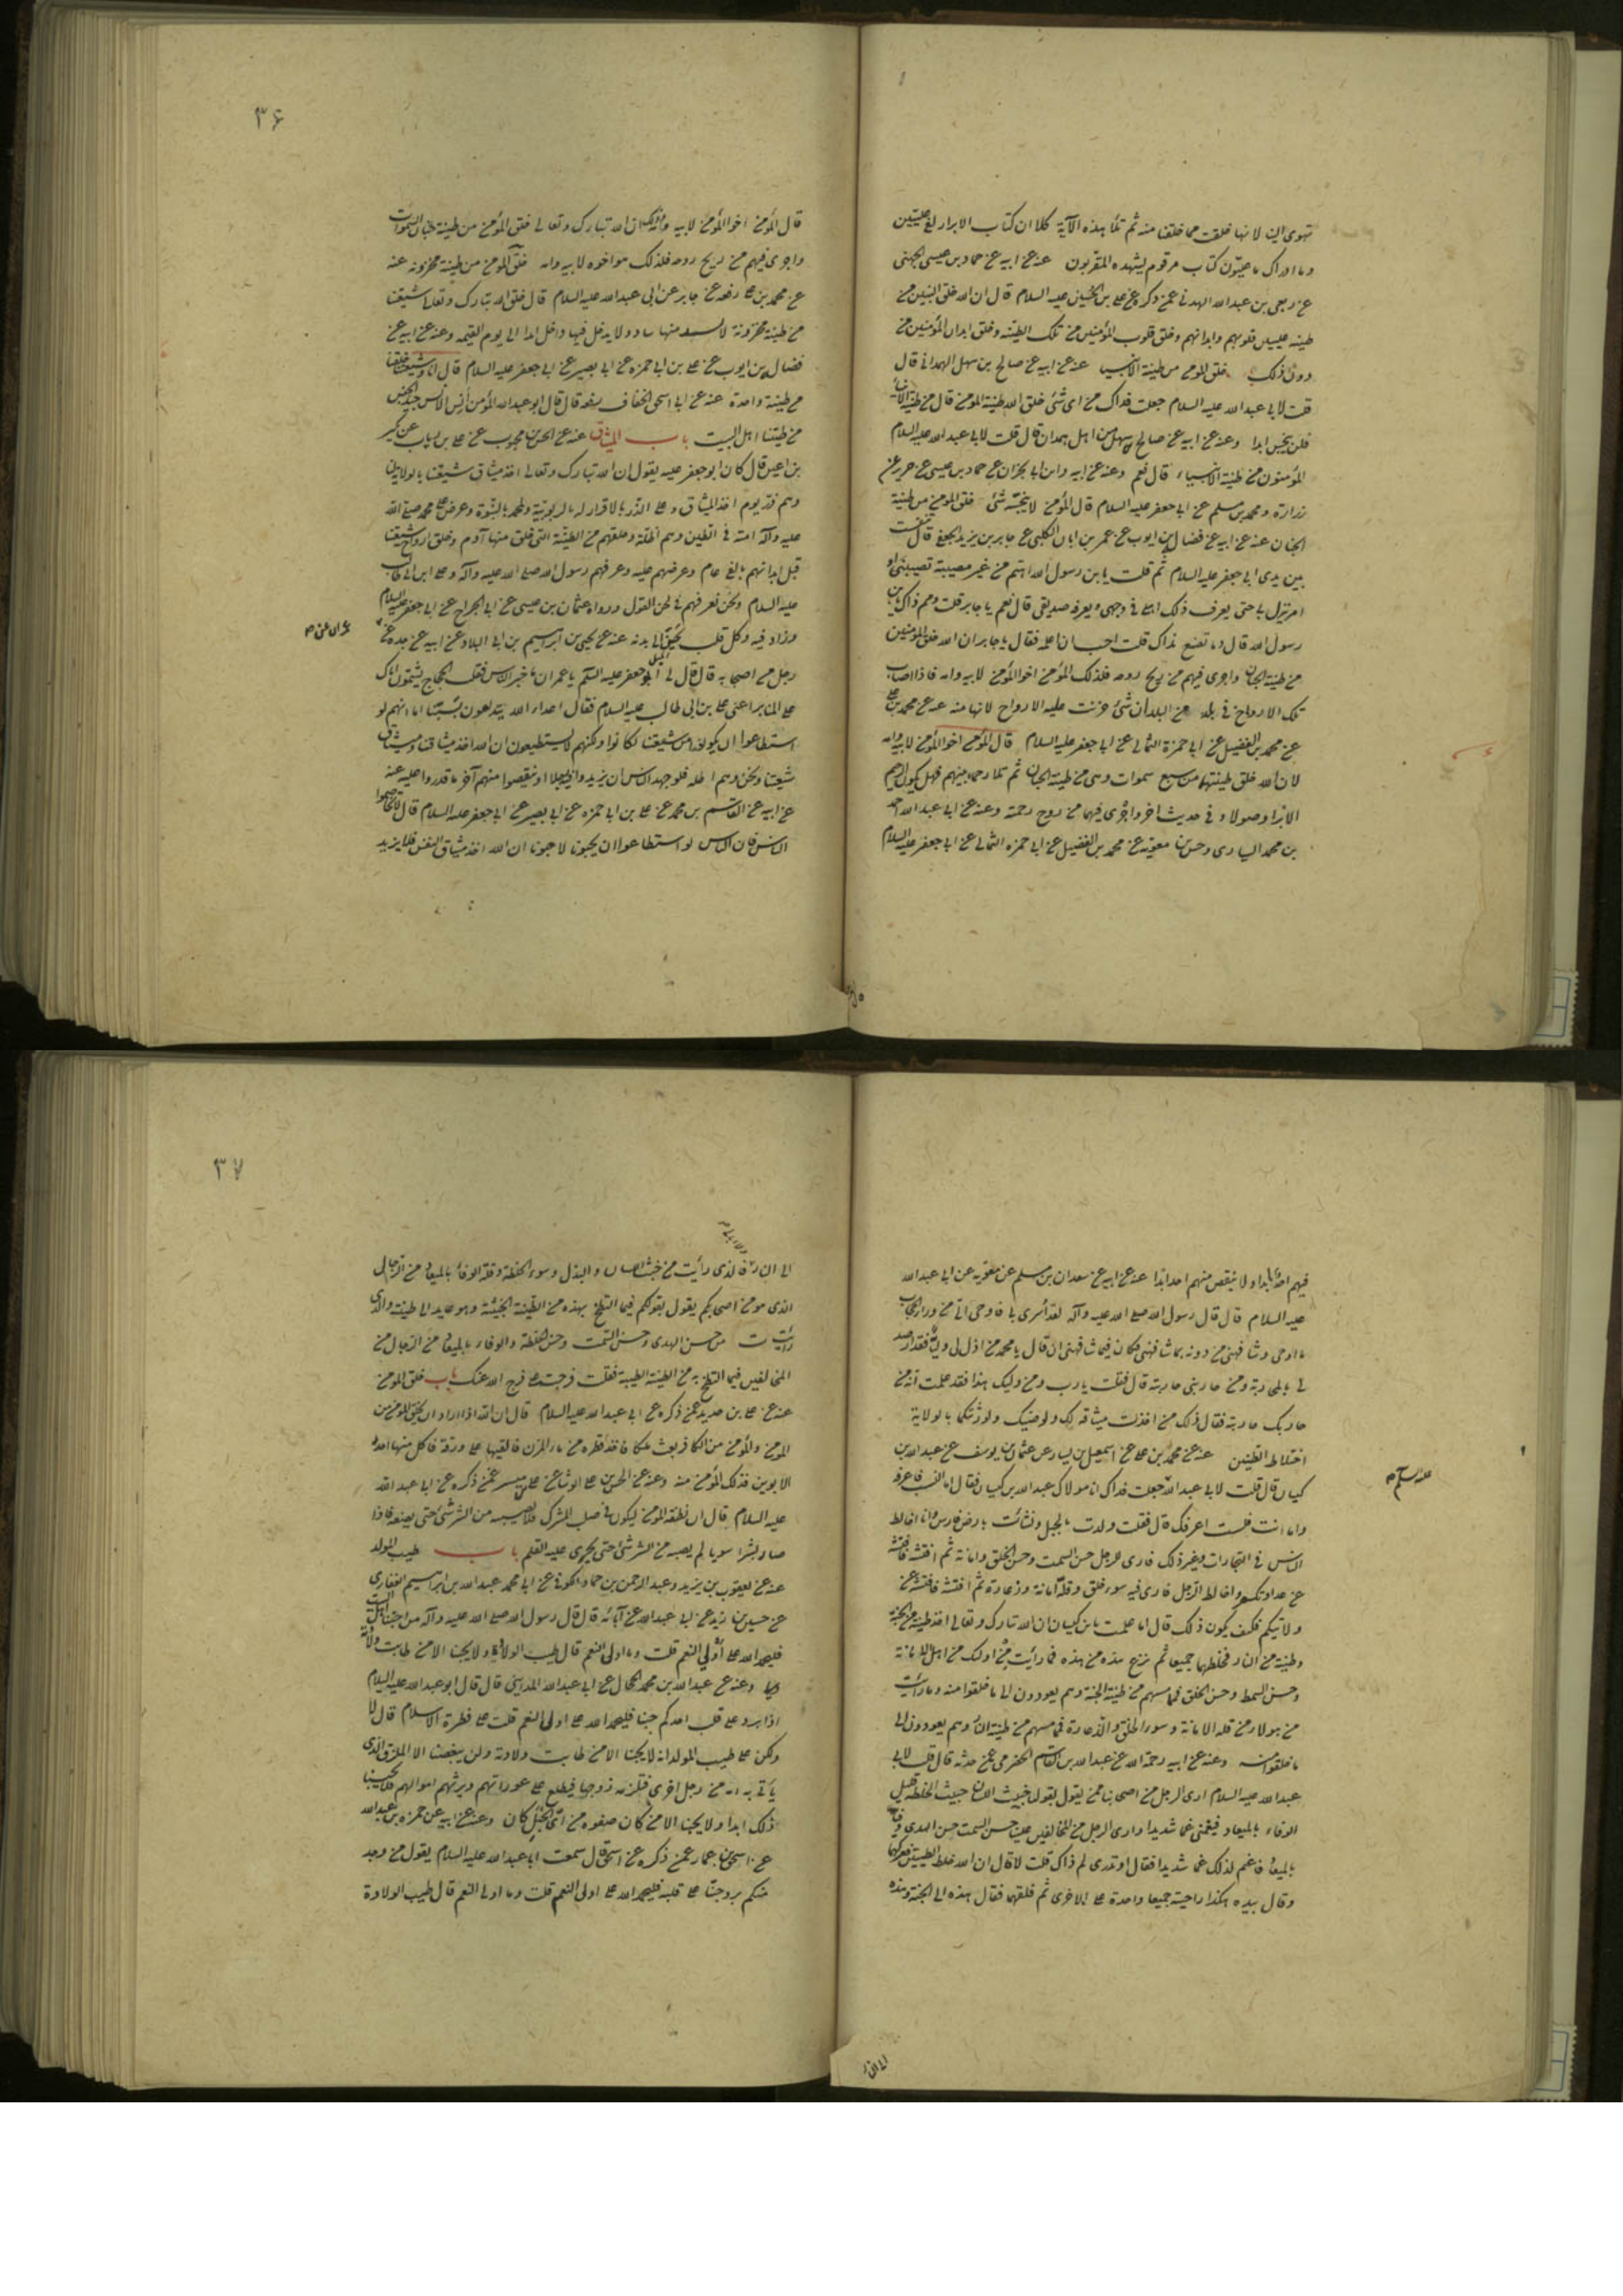 تهوى الينا لانها خلقت مما خلقنا منه ثم تلا هذه الآية كلا ان كتاب الابرار لفى عليين
وما ادراك ما عليون كتاب مرقوم يشهده المقربون عنه عن ابيه عن حماد بن عيسى الجهنى
عن ربعى بن عبد الله الهذلى عمن ذكره عن على بن الحسين عليه السلام قال ان الله خلق النبيين من
طينة عليين قلوبهم وابدانهم وخلق قلوب المؤمنين من تلك الطينة وخلق ابدان المؤمنين من
دون ذلك خلق المؤمن من طينة الانبياء عنه عن ابيه عن صالح بن سهل الهمدانى قال
قلت لابى عبد الله عليه السلام جعلت فداك من اى شئ خلق الله طينة المؤمن قال من طينة الانبياء
فلن ينجس ابدا وعنه عن ابيه عن صالح بن سهل من اهل همدان قال قلت لابى عبد الله عليه السلام
المؤمنون من طينة الانبياء قال نعم وعنه عن ابيه وابن ابى نجران عن حماد بن عيسى عن حريز عن
زرارة ومحمد بن مسلم عن ابى جعفر عليه السلام قال المؤمن لا ينجسه شئ خلق المؤمن من طينة
الجنان عنه عن ابيه عن فضالة بن ايوب عن عمر بن ابان الكلبى عن جابر بن يزيد الجعفى قال تنفست
بين يدى ابى جعفر عليه السلام ثم قلت يا بن رسول الله اهتم من غير مصيبة تصيبنى او
امر نزل بى حتى يعرف ذلك اهلى فى وجهى ويعرفه صديقى قال نعم يا جابر قلت ومم ذاك يا بن
رسول الله قال وما تصنع بذاك قلت احب ان اعلمه فقال يا جابر ان الله خلق المؤمنين
من طينة الجنان واجرى فيهم من ريح روحه فلذلك المؤمن اخو المؤمن لابيه وامه فاذا اصاب
تلك الارواح فى بلد من البلدان شئ حزنت عليه الارواح لانها منه عنه عن محمد بن على
عن محمد بن الفضيل عن ابى حمزة الثمالى عن ابى جعفر عليه السلام قال المؤمن اخو المؤمن لابيه وامه
لان الله خلق طينتهما من سبع سموات وهى من طينة الجنان ثم تلا رحماء بينهم فهل يكون الرحم
الا برا وصولا وفى حديث اخر واجرى فيهما من روح رحمته وعنه عن ابى عبد الله احمد
بن محمد السيارى وحسن بن معوية عن محمد بن الفضيل عن ابى حمزه الثمالى عن ابى جعفر عليه السلام
۳۶
قال المؤمن اخو المؤمن لابيه وامه وذلك ان الله تبارك وتعالى خلق المؤمن من طينة جنان السموات
واجرى فيهم من ريح روحه فلذلك هو اخوه لابيه وامه خلق المؤمن من طينة مخزونه عنه
عن محمد بن على رفعه عن جابر عن ابى عبد الله عليه السلام قال خلق الله تبارك وتعالى شيعتنا
من طينة مخزونة لا يشذ منها شاذ ولا يدخل فيها داخل ابدا الى يوم القيمه وعنه عن ابيه عن
فضالة بن ايوب عن على بن ابى حمزه عن ابى بصير عن ابى جعفر عليه السلام قال انا وشيعتنا خلقنا
من طينة واحدة عنه عن ابى اسحق الخفاف رفعه قال قال ابو عبد الله المؤمن آنس الانس جيد الجنس
من طينتنا اهل البيت باب الميثاق عنه عن الحسن بن محبوب عن على بن رياب عن بكير
بن اعين قال كان ابو جعفر عليه يقول ان الله تبارك وتعالى اخذ ميثاق شيعتنا بالولاية لنا
وهم ذر يوم اخذ الميثاق على الذر بالاقرار له بالربوبية ولمحمد بالنبوة وعرض على محمد صلى الله
عليه وآله امته فى الطين وهم اظلة وخلقهم من الطينة التى خلق منها آدم وخلق ارواح شيعتنا
قبل ابدانهم بالفى عام وعرضهم عليه وعرفهم رسول الله صلى الله عليه وآله وعلى ابن ابى طالب
عليه السلام ونحن نعرفهم فى لحن القول ورواه عثمان بن عيسى عن ابى الجراح عن ابى جعفر عليه السلام
وزاد فيه وكل قلب يحن الى بدنه عنه عن يحيى بن ابرهيم بن ابى البلاد عن ابيه عن جده عن
رجل من اصحابه قال قال لى ابو جعفر عليه السلم يا عمران ما خبر الناس فقلت الحجاج يشتمون اباك
على المنابر اعنى على بن ابى طالب عليه السلام فقال اعداء الله يبتدعون بسبنا اما انهم لو
استطاعوا ان يكونوا من شيعتنا لكانوا ولكنهم لا يستطيعون ان الله اخذ ميثاقنا وميثاق
شيعتنا ونحن وهم اظله فلو جهد الناس ان يزيدوا فيه رجلا او ينقصوا منهم آخر ما قدروا عليه عنه
عن ابيه عن القاسم بن محمد عن على بن ابى حمزه عن ابى بصير عن ابى جعفر عليه السلام قال لا تخاصموا
الناس فان الناس لو استطاعوا ان يحبونا لاحبونا ان الله اخذ ميثاق النفس فلا يزيد
فيهم احد ابدا ولا ينقص منهم احد ابدا عنه عن ابيه عن سعدان بن مسلم عن معوية عن ابى عبد الله
عليه السلام قال قال رسول الله صلى الله عليه وآله لقد اسرى بى فاوحى الى من وراء الحجاب
ما اوحى وشافهنى من دونه بما شافهنى فكان فيما شافهنى ان قال يا محمد من اذل لى وليا فقد ارصد
لى بالمحاربة ومن حاربنى حاربته قال فقلت يا رب ومن وليك هذا فقد علمت انه من
حاربك حاربته فقال ذلك من اخذت ميثاقه لك ولوصيك ولورثتكما بالولاية
اختلاط الطينتين عنه عن محمد بن على عن اسمعيل بن يسار عن عثمان بن يوسف عن عبد الله بن
كيسان قال قلت لابى عبد الله جعلت فداك انا مولاك عبد الله بن كيسان فقال اما النسب فاعرفه
واما انت فلست اعرفك قال فقلت ولدت بالجبل ونشأت بارض فارس وانا اخالط
الناس فى التجارات وغير ذلك فارى الرجل حسن السمت وحسن الخلق وامانة ثم افتشه فافتشه
عن عداوتكم واخالط الرجل فارى فيه سوء خلق وقلة امانة وزعارة ثم افتشه فافتشه عن
ولايتكم فكيف يكون ذلك قال اما علمت يا بن كيسان ان الله تبارك وتعالى اخذ طينة من الجنة
وطينة من النار فخلطهما جميعا ثم نزع هذه من هذه فما رأيت من اولئك من اهل الامانة
وحسن السمط وحسن الخلق فمما مسهم من طينة الجنة وهم يعودون الى ما خلقوا منه وما رأيت
من هولاء من قلة الامانة وسوء الخلق والزعارة فمما مسهم من طينة النار وهم يعودون الى
ما خلقوا منه وعنه عن ابيه رحمة الله عن عبد الله بن القاسم الحضرمى عمن حدثه قال قلت لابى
عبد الله عليه السلام ارى الرجل من اصحابنا ممن يقول بقولنا خبيث اللسان خبيث الخلطة قليل
الوفاء بالميعاد فيغمنى غما شديدا وارى الرجل من المخالفين علينا حسن السمت حسن الهدى وفيا
بالميعاد فاغتم لذلك غما شديدا فقال او تدرى لم ذاك قلت لا قال ان الله خلط الطينتين فعركهما
وقال بيده هكذا راحتيه جميعا واحدة على الاخرى ثم فلقهما فقال هذه الى الجنة وهذه
۳۷
الى النار فالذى رأيت من خبث اللسان والبذل وسوء الخلطة وقلة الوفاء بالميعاد من الرجل
الذى هو من اصحابكم يقول بقولكم فبما التطخ بهذه من الطينة الخبيثة وهو عايد الى طينته والذى
رأيت من حسن الهدى وحسن السمت وحسن الخلطة والوفاء بالميعاد من الرجال من
المخالفين فبما التطخ به من الطينة الطيبة فقلت فرجت عنى فرج الله عنك باب خلق المؤمن
عنه عن على بن حديد عمن ذكره عن ابى عبد الله عليه السلام قال ان الله اذا اراد ان يخلق المؤمن من
المؤمن والمؤمن من الكافر بعث ملكا فاخذ قطره من ماء المزن فالقيها على ورقة فاكل منها احد
الابوين فذلك المؤمن منه وعنه عن الحسن بن على الوشا عن على بن ميسر عمن ذكره عن ابى عبد الله
عليه السلام قال ان نطفة المؤمن ليكون فى صلب المشرك فلا يصيبه من الشر شئ حتى يضعه فاذا
صار بشرا سويا لم يصبه من الشر شئ حتى يجرى عليه القلم باب طيب المولد
عنه عن يعقوب بن يزيد وعبد الرحمن بن حماد الكوفى عن ابى محمد عبد الله بن ابراهيم الغفارى
عن حسين بن زيد عن ابى عبد الله عن آبائه قال قال رسول الله صلى الله عليه وآله من احبنا اهل البيت
فليحمد الله على أولى النعم قلت وما اولى النعم قال طيب الولادة ولا يحبنا الا من طابت ولادته
وعنه عن عبد الله بن محمد الحجال عن ابى عبد الله المداينى قال قال ابو عبد الله عليه السلام
اذا برد على قلب احدكم حبنا فليحمد الله على اولى النعم قلت على فطرة الاسلام قال لا
ولكن على طيب المولد انه لا يحبنا الا من طابت ولادته ولن يبغضنا الا الملزق الذى
يأتى به امه من رجل اخرى فتلزمه زوجها فيطلع على عوراتهم ويرثهم اموالهم فلا يحبنا
ذلك ابدا ولا يحبنا الا من كان صفوه من اى الجبل كان وعنه عن ابيه عن حمزه بن عبد الله
عن اسحق بن عمار عمن ذكره عن اسحق قال سمعت ابا عبد الله عليه السلام يقول من وجد
منكم برد حبنا على قلبه فليحمد الله على اولى النعم قلت وما اولى النعم قال طيب الولادة